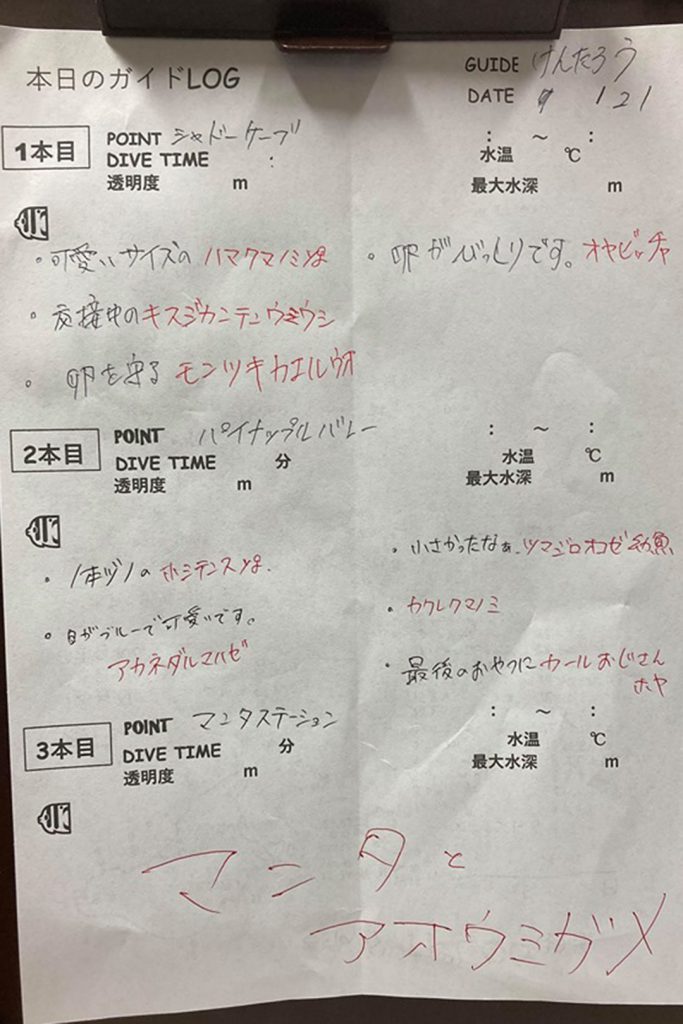 本日のガイドLOG
GUIDE けんたろう
DATE 9 / 21
1本目
POINT シャドーケーブ
DIVE TIME :
透明度 m
: ~ :
水温 ℃
最大水深 m
・可愛いサイズの ハマクマノミyg
・交接中のキスジカンテンウミウシ
・卵を守る モンツキカエルウオ
・卵がびっしりです。オヤビッチャ
2本目
POINT パイナップルバレー
DIVE TIME 分
透明度 m
: ~ :
水温 ℃
最大水深 m
・1本ヅノの ホシテンスyg.
・目がブルーで可愛いです。
アカネダルマハゼ
・小さかったなぁ.ツマジロオコゼ幼魚
・カクレクマノミ
・最後のおやつにカールおじさん
ホヤ
3本目
POINT マンタステーション
DIVE TIME 分
透明度 m
: ~ :
水温 ℃
最大水深 m
マンタと
アオウミガメ